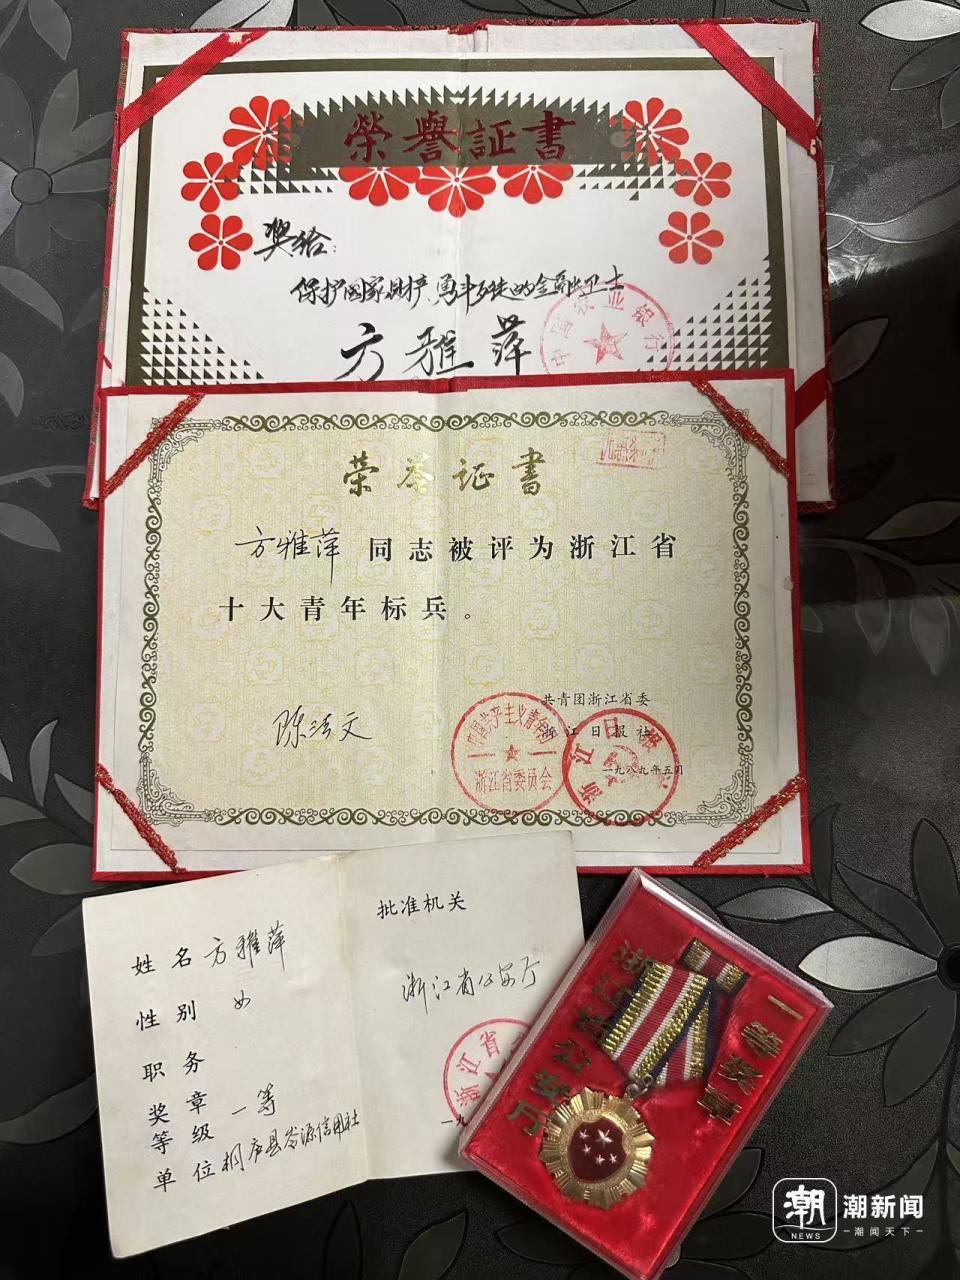 榮譽証書
奖给：
保护国家财产、勇斗歹徒的金融卫士
方雅萍
中国农业银行
荣誉证書
方雅萍 同志被评为浙江省
十大青年标兵。
共青团浙江省委
浙江日报社
一九八九年五月
中国共产主义青年团
浙江省委员会
浙江日报
姓名 方雅萍
性别 女
职务
奖章等级 一等
单位 桐庐县岑源信用社
批准机关
浙江省公安厅
浙江省
一九
一等奖章
浙江省公安厅
潮
NEWS
潮新闻
潮闻天下